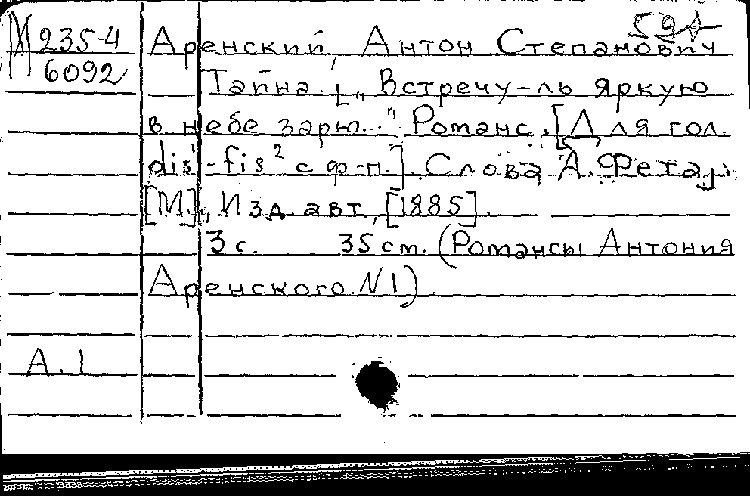 М 235-4
6092
Аренский, Антон Степанович
Тайна. „Встречу-ль яркую
в небе зарю..." Романс. [Для гол.
dis¹-fis² с ф-п.]. Слова А. Фета.
[М.], Изд. авт., [1885].
3 с. 35 см. (Романсы Антония
Аренского. N 1).
А. 1